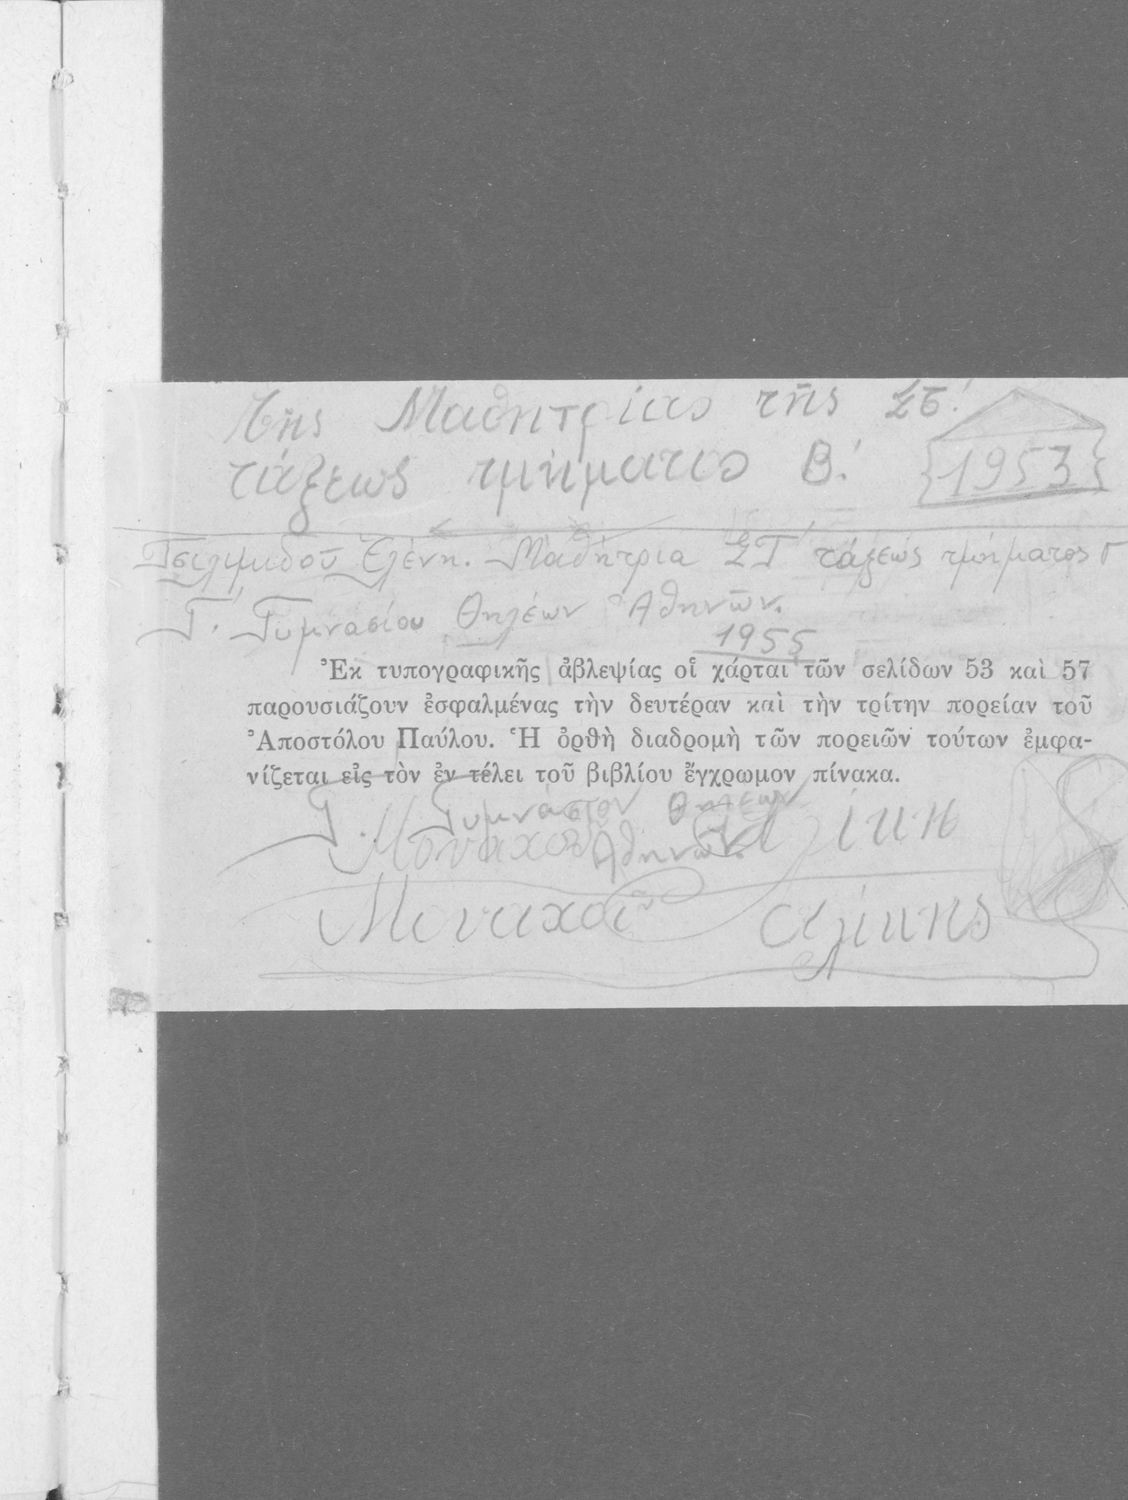 τῆς Μαθητρίας τῆς ΣΤ΄.
τάξεως τμήματος Β΄.
1953
Ἑλένη. Μαθήτρια ΣΤ΄ τάξεως τμήματος Γ
Γ΄. Γυμνασίου Θηλέων Ἀθηνῶν.
1955
Ἐκ τυπογραφικῆς ἀβλεψίας οἱ χάρται τῶν σελίδων 53 καὶ 57
παρουσιάζουν ἐσφαλμένας τὴν δευτέραν καὶ τὴν τρίτην πορείαν τοῦ
Ἀποστόλου Παύλου. Ἡ ὀρθὴ διαδρομὴ τῶν πορειῶν τούτων ἐμφα-
νίζεται εἰς τὸν ἐν τέλει τοῦ βιβλίου ἔγχρωμον πίνακα.
Γ. Γυμνάσιον Θηλέων
Ἀθηνῶν.
Μοναχοῦ Ἀλίκη
Μοναχοῦ Ἀλίκης